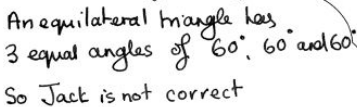 An equilateral triangle has
3 equal angles of 60°, 60° and 60°
So Jack is not correct